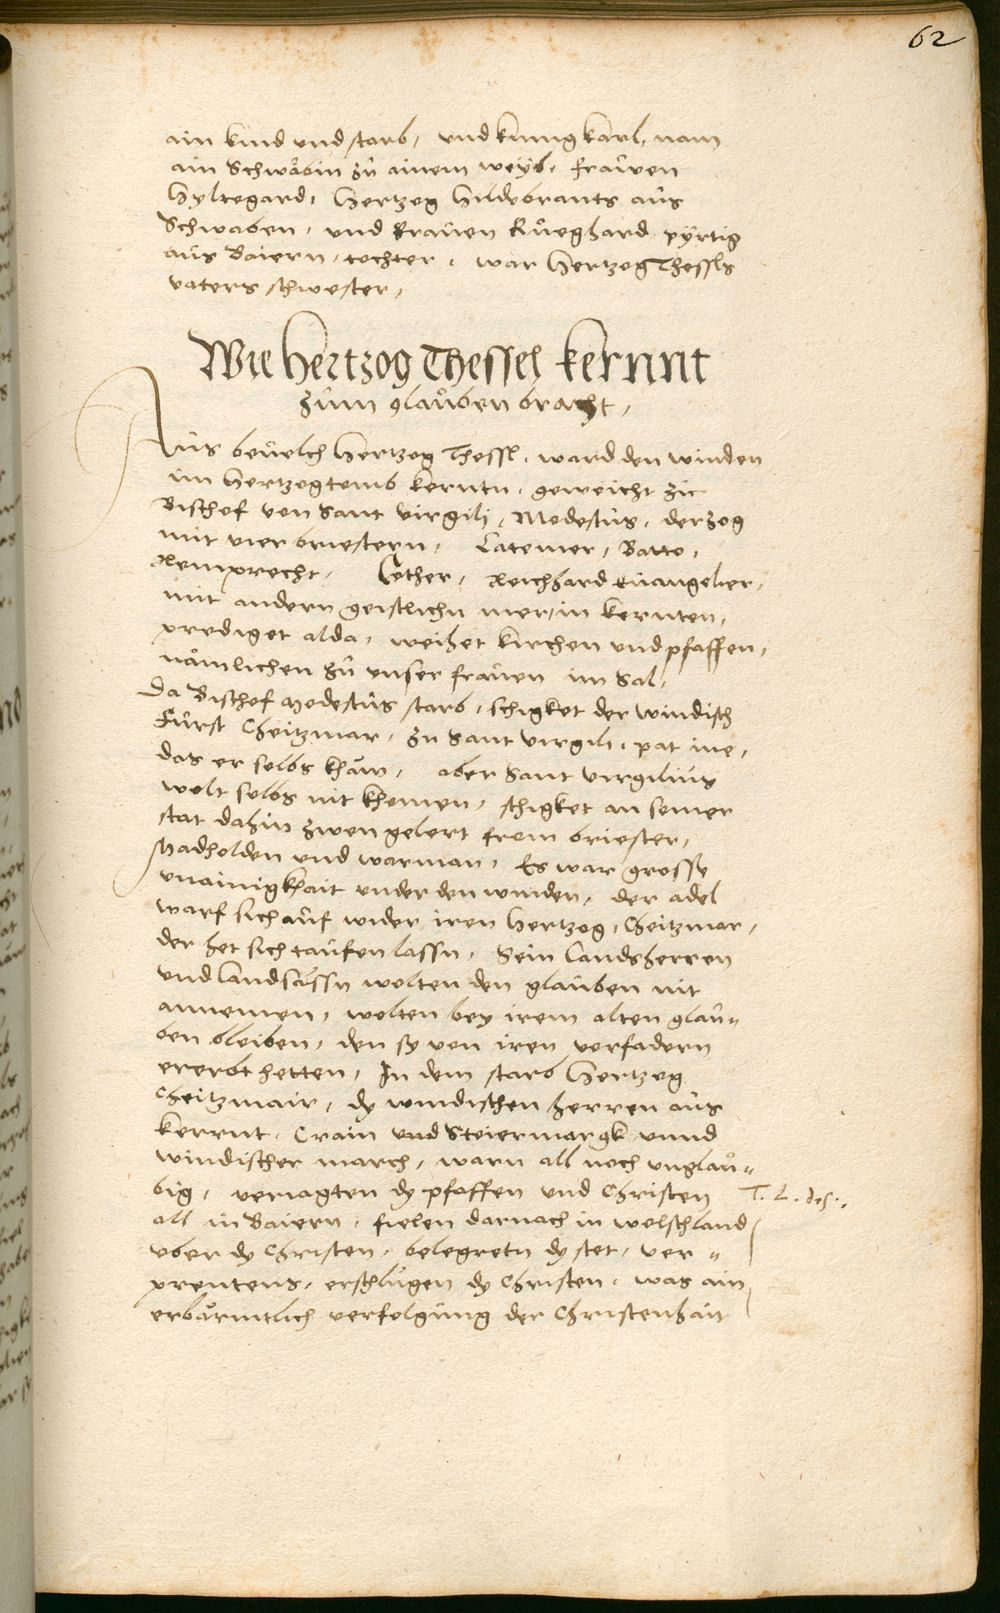 62
ain kind und starb, und kunig karl, nam
ain Schwäbin zu ainem weyb, frawen
Hyltegard, Hertzog Hildebrants aus
Schwaben, und frawen Rueghard pyrtig
aus Baiern, tochter, war Hertzog Thessls
vaters schwester,
Wie Hertzog Thessel kernnt
zum glauben bracht,
Aus bevelch Hertzog Thessl, ward den winden
im Hertzogtomb kerntn, geweicht zu
Bischof von Sant Virgilj, Modestus, der zog
mit vier briestern, Latemer, Batto,
Remprecht, Lother, Reichhard Euangelier,
mit andern geistlichn mer, in kernten,
prediget alda, weihet kirchen und pfaffen,
nämlichen zu unser frawen im Sal,
Da Bischof Modestus starb, schigket der windisch
Fürst Cheitzmar, zu Sant Virgili, pat ine,
das er selbs khäm, aber Sant Virgilius
wolt selbs nit khomen, schigket an seiner
stat dahin zwen gelert from briester,
Madholden und warman, Es war grosse
unainigkhait under den winden, der adel
warf sich auf wider iren Hertzog, Cheitzmar,
der het sich taufen lassn, Sein Landsherren
und landsässn wolten den glauben nit
annemen, wolten bey irem alten glau=
ben bleiben, den sy von iren vorfadern
ererbt hetten, In dem starb Hertzog
Cheitzmair, dy windischen herren aus
kernnt, Crain und Steiermargk unnd
windischer march, warn all noch unglau=
big, veriagten dy pfaffen und Christen
T. L. des.
all in Baiern, fielen darnach in welschland
uber dy Christen, belegretn dy stet, ver=
prentens, erschlugen dy Christen, was ain
erbärmtlich verfolgung der Christenhait